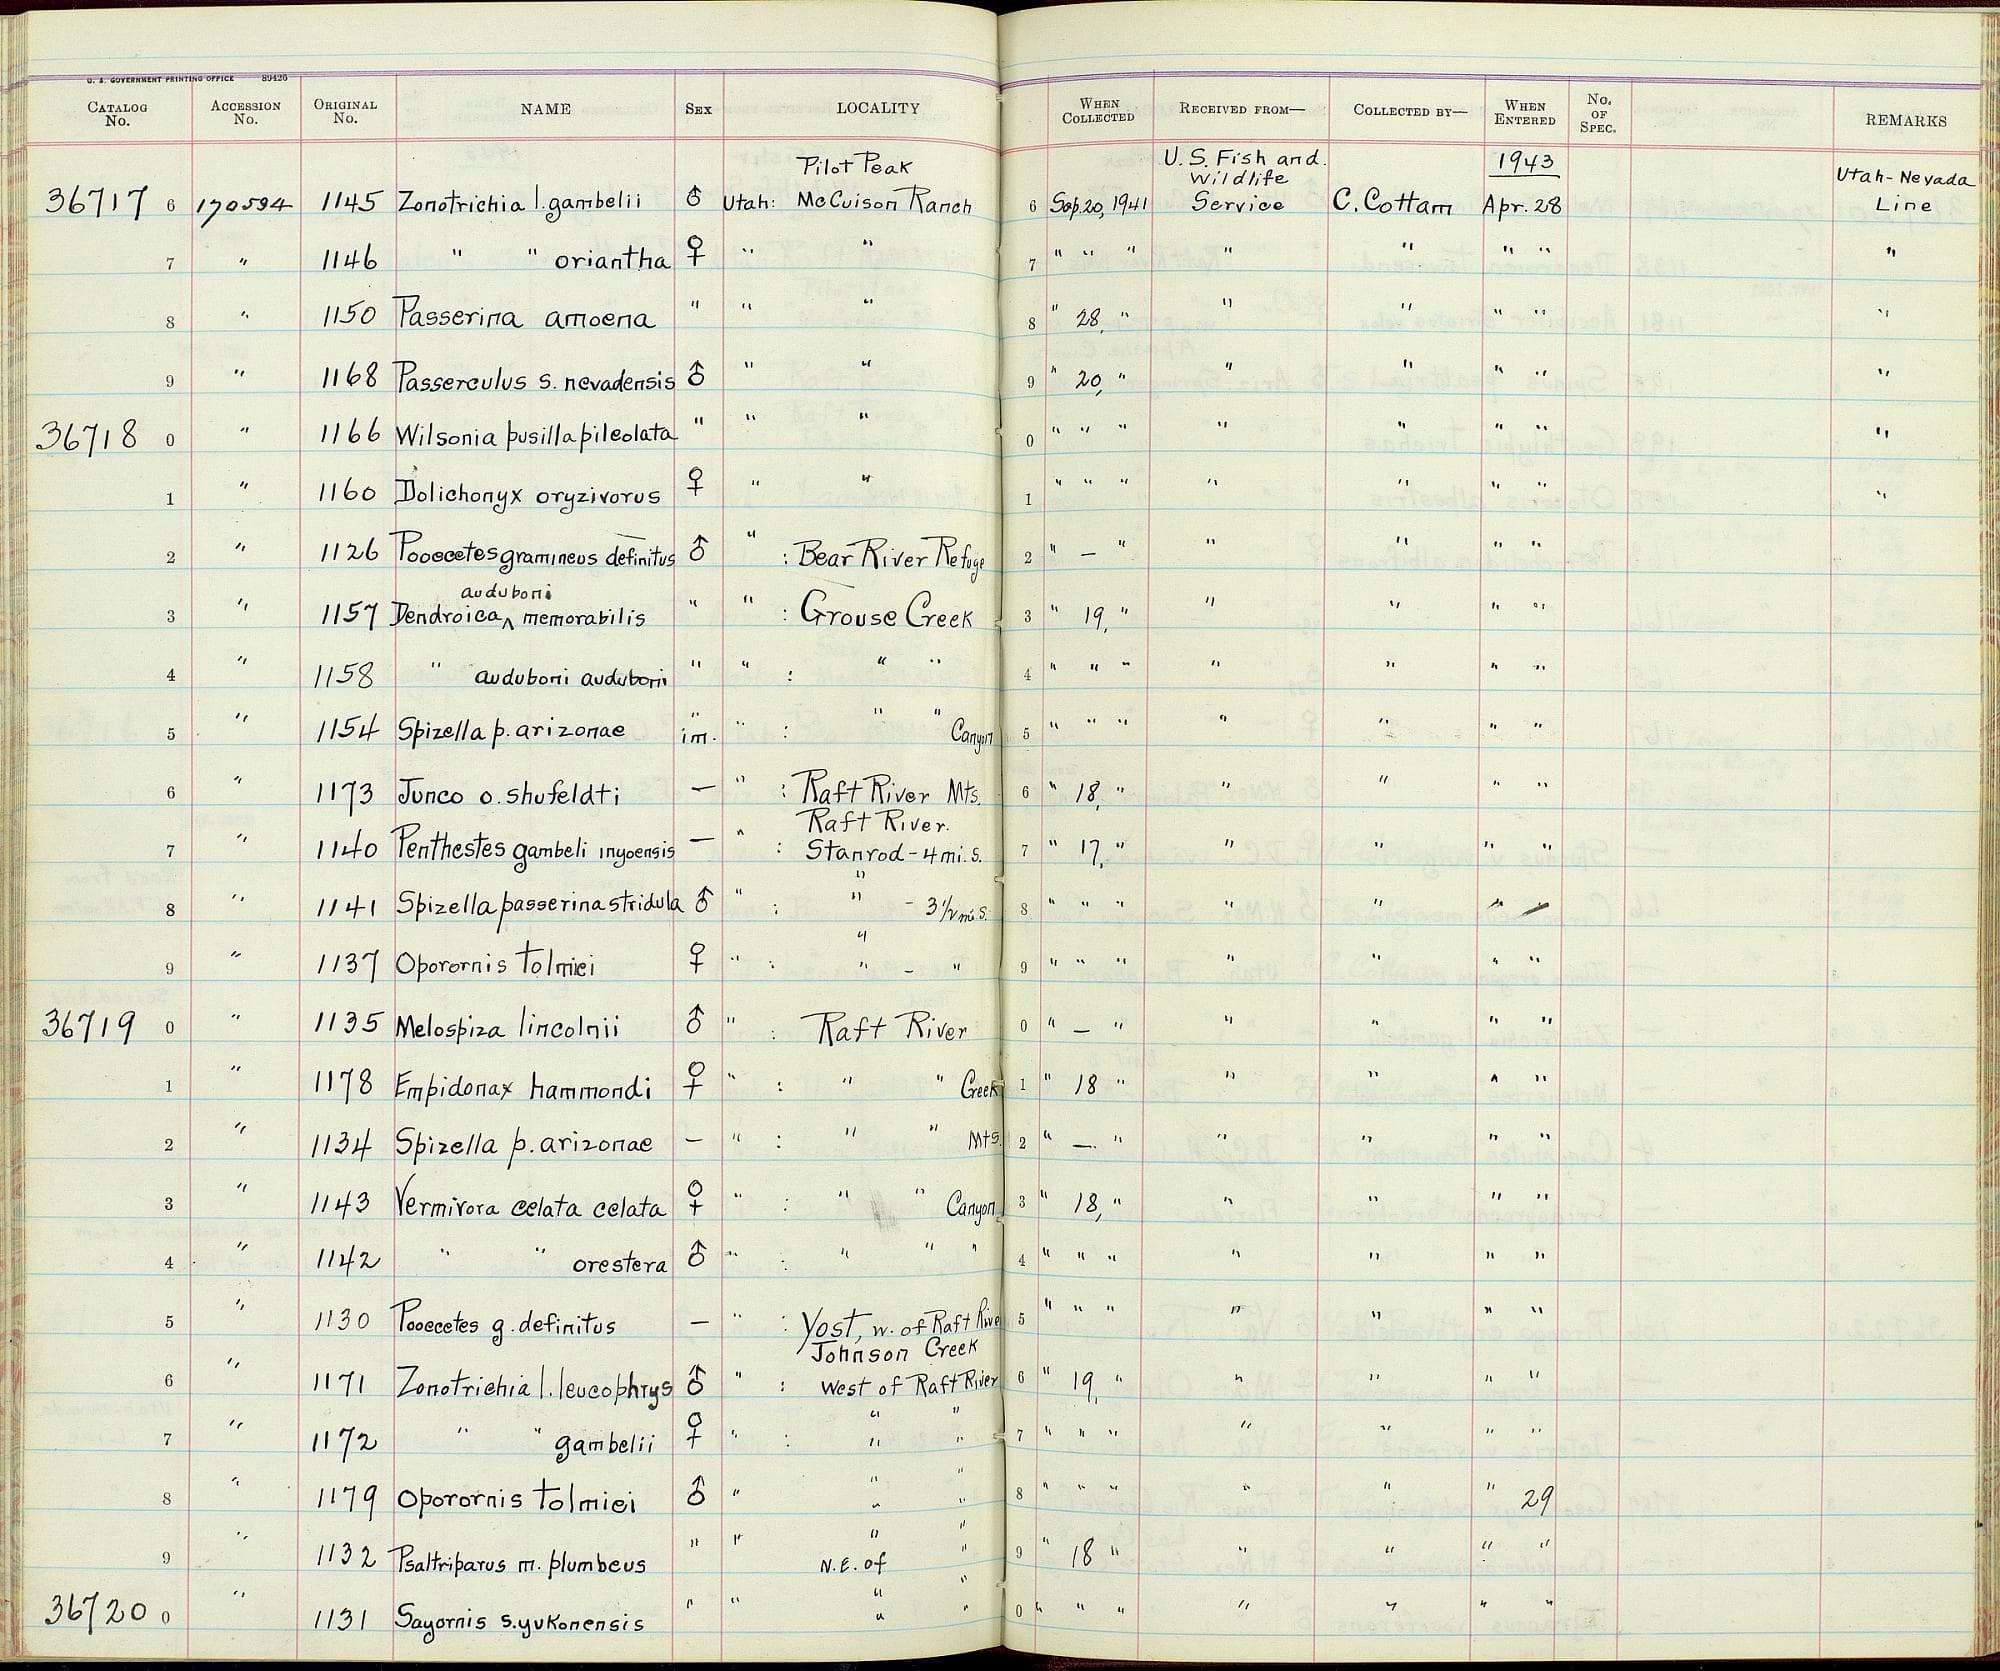 U. S. GOVERNMENT PRINTING OFFICE 89426
CATALOG No. ACCESSION No. ORIGINAL No. NAME SEX LOCALITY WHEN COLLECTED RECEIVED FROM— COLLECTED BY— WHEN ENTERED No. OF SPEC. REMARKS
Pilot Peak U. S. Fish and Wildlife 1943 Utah-Nevada
36717 6 170594 1145 Zonotrichia l. gambelii ♂ Utah: McCuison Ranch 6 Sep. 20, 1941 Service C. Cottam Apr. 28 Line
7 " 1146 " " oriantha ♀ " " 7 " " " " " " " "
8 " 1150 Passerina amoena " " " 8 " 28, " " " " " "
9 " 1168 Passerculus s. nevadensis ♂ " " 9 " 20, " " " " " "
36718 0 " 1166 Wilsonia pusilla pileolata " " " 0 " " " " " " " "
1 " 1160 Dolichonyx oryzivorus ♀ " " 1 " " " " " " " "
2 " 1126 Pooecetes gramineus definitus ♂ " : Bear River Refuge 2 " — " " " " "
auduboni
3 " 1157 Dendroica ^ memorabilis " " : Grouse Creek 3 " 19, " " " " "
4 " 1158 " auduboni auduboni " " : " " 4 " " " " " " "
5 " 1154 Spizella p. arizonae " im. " : " " Canyon 5 " " " " " " "
6 " 1173 Junco o. shufeldti — " : Raft River Mts. 6 " 18, " " " " "
Raft River.
7 " 1140 Penthestes gambeli inyoensis — " : Stanrod - 4 mi. s. 7 " 17, " " " " "
"
8 " 1141 Spizella passerina stridula ♂ " : " - 3 1/2 mi. S. 8 " " " " " " "
"
9 " 1137 Oporornis tolmiei ♀ " : " - " 9 " " " " " " "
36719 0 " 1135 Melospiza lincolnii ♂ " : Raft River 0 " — " " " " "
1 " 1178 Empidonax hammondi ♀ " : " " Creek 1 " 18 " " " " "
2 " 1134 Spizella p. arizonae — " : " " Mts. 2 " — " " " " "
3 " 1143 Vermivora celata celata ♀ " : " " Canyon 3 " 18, " " " " "
4 " 1142 " " orestera ♂ " : " " " 4 " " " " " " "
5 " 1130 Pooecetes g. definitus — " : Yost, w. of Raft Rive 5 " " " " " " "
Johnson Creek
6 " 1171 Zonotrichia l. leucophrys ♂ " : West of Raft River 6 " 19, " " " " "
" "
7 " 1172 " " gambelii ♀ " : " " 7 " " " " " " "
" "
8 " 1179 Oporornis tolmiei ♂ " " " 8 " " " " " " 29
" "
9 " 1132 Psaltriparus m. plumbeus " " N.E. of 9 " 18 " " " " "
" "
36720 0 " 1131 Sayornis s. yukonensis " " " " 0 " " " " " " "